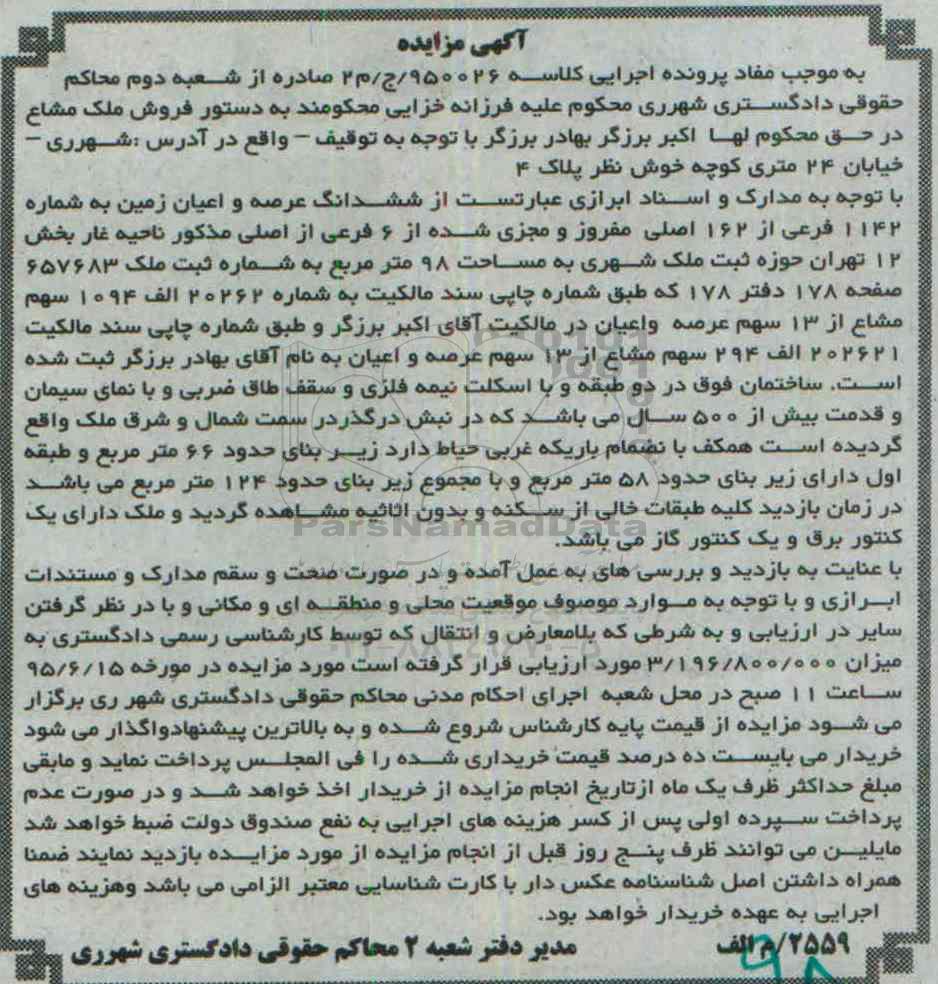 آگهی مزایده
به موجب مفاد پرونده اجرایی کلاسه ۹۵۰۰۲۶/ج/م۲ صادره از شعبه دوم محاکم
حقوقی دادگستری شهرری محکوم علیه فرزانه خزایی محکومند به دستور فروش ملک مشاع
در حق محکوم لها اکبر برزگر بهادر برزگر با توجه به توقیف – واقع در آدرس :شهرری –
خیابان ۲۴ متری کوچه خوش نظر پلاک ۴
با توجه به مدارک و اسناد ابرازی عبارتست از ششدانگ عرصه و اعیان زمین به شماره
۱۱۴۲ فرعی از ۱۶۲ اصلی مفروز و مجزی شده از ۶ فرعی از اصلی مذکور ناحیه غار بخش
۱۲ تهران حوزه ثبت ملک شهری به مساحت ۹۸ متر مربع به شماره ثبت ملک ۶۵۷۶۸۳
صفحه ۱۷۸ دفتر ۱۷۸ که طبق شماره چاپی سند مالکیت به شماره ۲۰۲۶۲ الف ۱۰۹۴ سهم
مشاع از ۱۳ سهم عرصه واعیان در مالکیت آقای اکبر برزگر و طبق شماره چاپی سند مالکیت
۲۰۲۶۲۱ الف ۲۹۴ سهم مشاع از ۱۳ سهم عرصه و اعیان به نام آقای بهادر برزگر ثبت شده
است. ساختمان فوق در دو طبقه و با اسکلت نیمه فلزی و سقف طاق ضربی و با نمای سیمان
و قدمت بیش از ۵۰۰ سال می باشد که در نبش درگذردر سمت شمال و شرق ملک واقع
گردیده است همکف با نضمام باریکه غربی حیاط دارد زیر بنای حدود ۶۶ متر مربع و طبقه
اول دارای زیر بنای حدود ۵۸ متر مربع و با مجموع زیر بنای حدود ۱۲۴ متر مربع می باشد
در زمان بازدید کلیه طبقات خالی از سکنه و بدون اثاثیه مشاهده گردید و ملک دارای یک
ParsNamadData
کنتور برق و یک کنتور گاز می باشد.
با عنایت به بازدید و بررسی های به عمل آمده و در صورت صحت و سقم مدارک و مستندات
ابرازی و با توجه به موارد موصوف موقعیت محلی و منطقه ای و مکانی و با در نظر گرفتن
سایر در ارزیابی و به شرطی که بلامعارض و انتقال که توسط کارشناسی رسمی دادگستری به
میزان ۳/۱۹۶/۸۰۰/۰۰۰ مورد ارزیابی قرار گرفته است مورد مزایده در مورخه ۹۵/۶/۱۵
ساعت ۱۱ صبح در محل شعبه اجرای احکام مدنی محاکم حقوقی دادگستری شهر ری برگزار
می شود مزایده از قیمت پایه کارشناس شروع شده و به بالاترین پیشنهادواگذار می شود
خریدار می بایست ده درصد قیمت خریداری شده را فی المجلس پرداخت نماید و مابقی
مبلغ حداکثر ظرف یک ماه ازتاریخ انجام مزایده از خریدار اخذ خواهد شد و در صورت عدم
پرداخت سپرده اولی پس از کسر هزینه های اجرایی به نفع صندوق دولت ضبط خواهد شد
مایلین می توانند ظرف پنج روز قبل از انجام مزایده از مورد مزایده بازدید نمایند ضمنا
همراه داشتن اصل شناسنامه عکس دار با کارت شناسایی معتبر الزامی می باشد وهزینه های
اجرایی به عهده خریدار خواهد بود.
۲۵۵۹/م الف مدیر دفتر شعبه ۲ محاکم حقوقی دادگستری شهرری